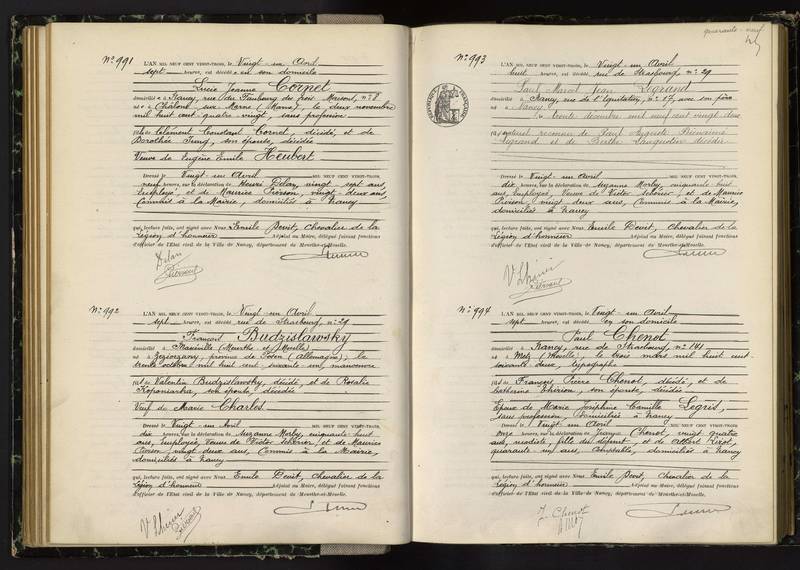 N° 991
L'AN MIL NEUF CENT VINGT-TROIS, le Vingt-un Avril
sept heures, est décédé en son domicile
Lucie Jeanne Cornet
domiciliée à Nancy, rue du Faubourg des trois Maisons, n° 8
née à Châlons sur Marne (Marne), le deux novembre
mil huit cent quatre vingt, sans profession
fille de Clément Constant Cornet, décédé, et de
Dorothée Jung, son épouse, décédée
Veuve de Eugène Emile Heubert
Dressé le Vingt-un Avril MIL NEUF CENT VINGT-TROIS,
neuf heures, sur la déclaration de Henri Delan, vingt-sept ans,
employé, et de Maurice Pierson, vingt-deux ans,
Commis à la Mairie, domiciliés à Nancy
qui, lecture faite, ont signé avec Nous Emile Devit, Chevalier de la
Légion d'honneur Adjoint au Maire, délégué faisant fonctions
d'officier de l'Etat civil de la Ville de Nancy, département de Meurthe-et-Moselle.
N° 992
L'AN MIL NEUF CENT VINGT-TROIS, le Vingt-un Avril
sept heures, est décédé rue de Strasbourg, n° 29
François Budzislawsky
à Maxéville (Meurthe et Moselle)
né à province de Posen (Allemagne), le
trente octobre mil huit cent soixante neuf, manœuvre
fils de Valentin Budzislawsky, décédé, et de Rosalie
son épouse, décédée
Veuf de Marie Charles
Dressé le Vingt-un Avril MIL NEUF CENT VINGT-TROIS,
dix heures, sur la déclaration de Suzanne Morly, cinquante huit
ans, employée, Veuve de Victor et de Maurice
Pierson, vingt deux ans, Commis à la Mairie,
domiciliés à Nancy
qui, lecture faite, ont signé avec Nous Emile Devit, chevalier de la
Légion d'honneur Adjoint au Maire, délégué faisant fonctions
d'officier de l'Etat civil de la Ville de Nancy, département de Meurthe-et-Moselle.
quarante-neuf
49
N° 993
L'AN MIL NEUF CENT VINGT-TROIS, le Vingt-un Avril
huit heures, est décédé rue de Strasbourg, n° 29
Paul Marcel Jean Legrand
domicilié à Nancy, rue de l'Equitation, n° 17, avec son père
né à Nancy
le trente décembre mil neuf cent vingt deux
fils naturel reconnu de Paul Auguste Bienaimé
Legrand et de Berthe
Dressé le Vingt-un Avril MIL NEUF CENT VINGT-TROIS,
dix heures, sur la déclaration de Suzanne Morly, cinquante huit
ans, employée, Veuve de Victor et de Maurice
Pierson, vingt deux ans, Commis à la Mairie,
domiciliés à Nancy
qui, lecture faite, ont signé avec Nous Emile Devit, Chevalier de la
Légion d'honneur Adjoint au Maire, délégué faisant fonctions
d'officier de l'Etat civil de la Ville de Nancy, département de Meurthe-et-Moselle.
N° 994
L'AN MIL NEUF CENT VINGT-TROIS, le Vingt-un Avril
sept heures, est décédé en son domicile
Paul Chenot
à Nancy, rue de Strasbourg, n° 141
né à Metz (Moselle), le trois mars mil huit cent
soixante deux, typographe
fils de François Pierre Chenot, décédé, et de
Catherine Thirion, son épouse, décédée
Epoux de Marie Joséphine Camille Legris,
sans profession domiciliée à Nancy
Dressé le Vingt un Avril MIL NEUF CENT VINGT-TROIS,
onze heures, sur la déclaration de Jeanne Chenot, vingt quatre
ans, modiste, fille du défunt, et de Albert
quarante un ans, comptable, domiciliés à Nancy
qui, lecture faite, ont signé avec Nous Emile Devit, Chevalier de la
Légion d'honneur Adjoint au Maire, délégué faisant fonctions
d'officier de l'Etat civil de la Ville de Nancy, département de Meurthe-et-Moselle.
J. Chenot